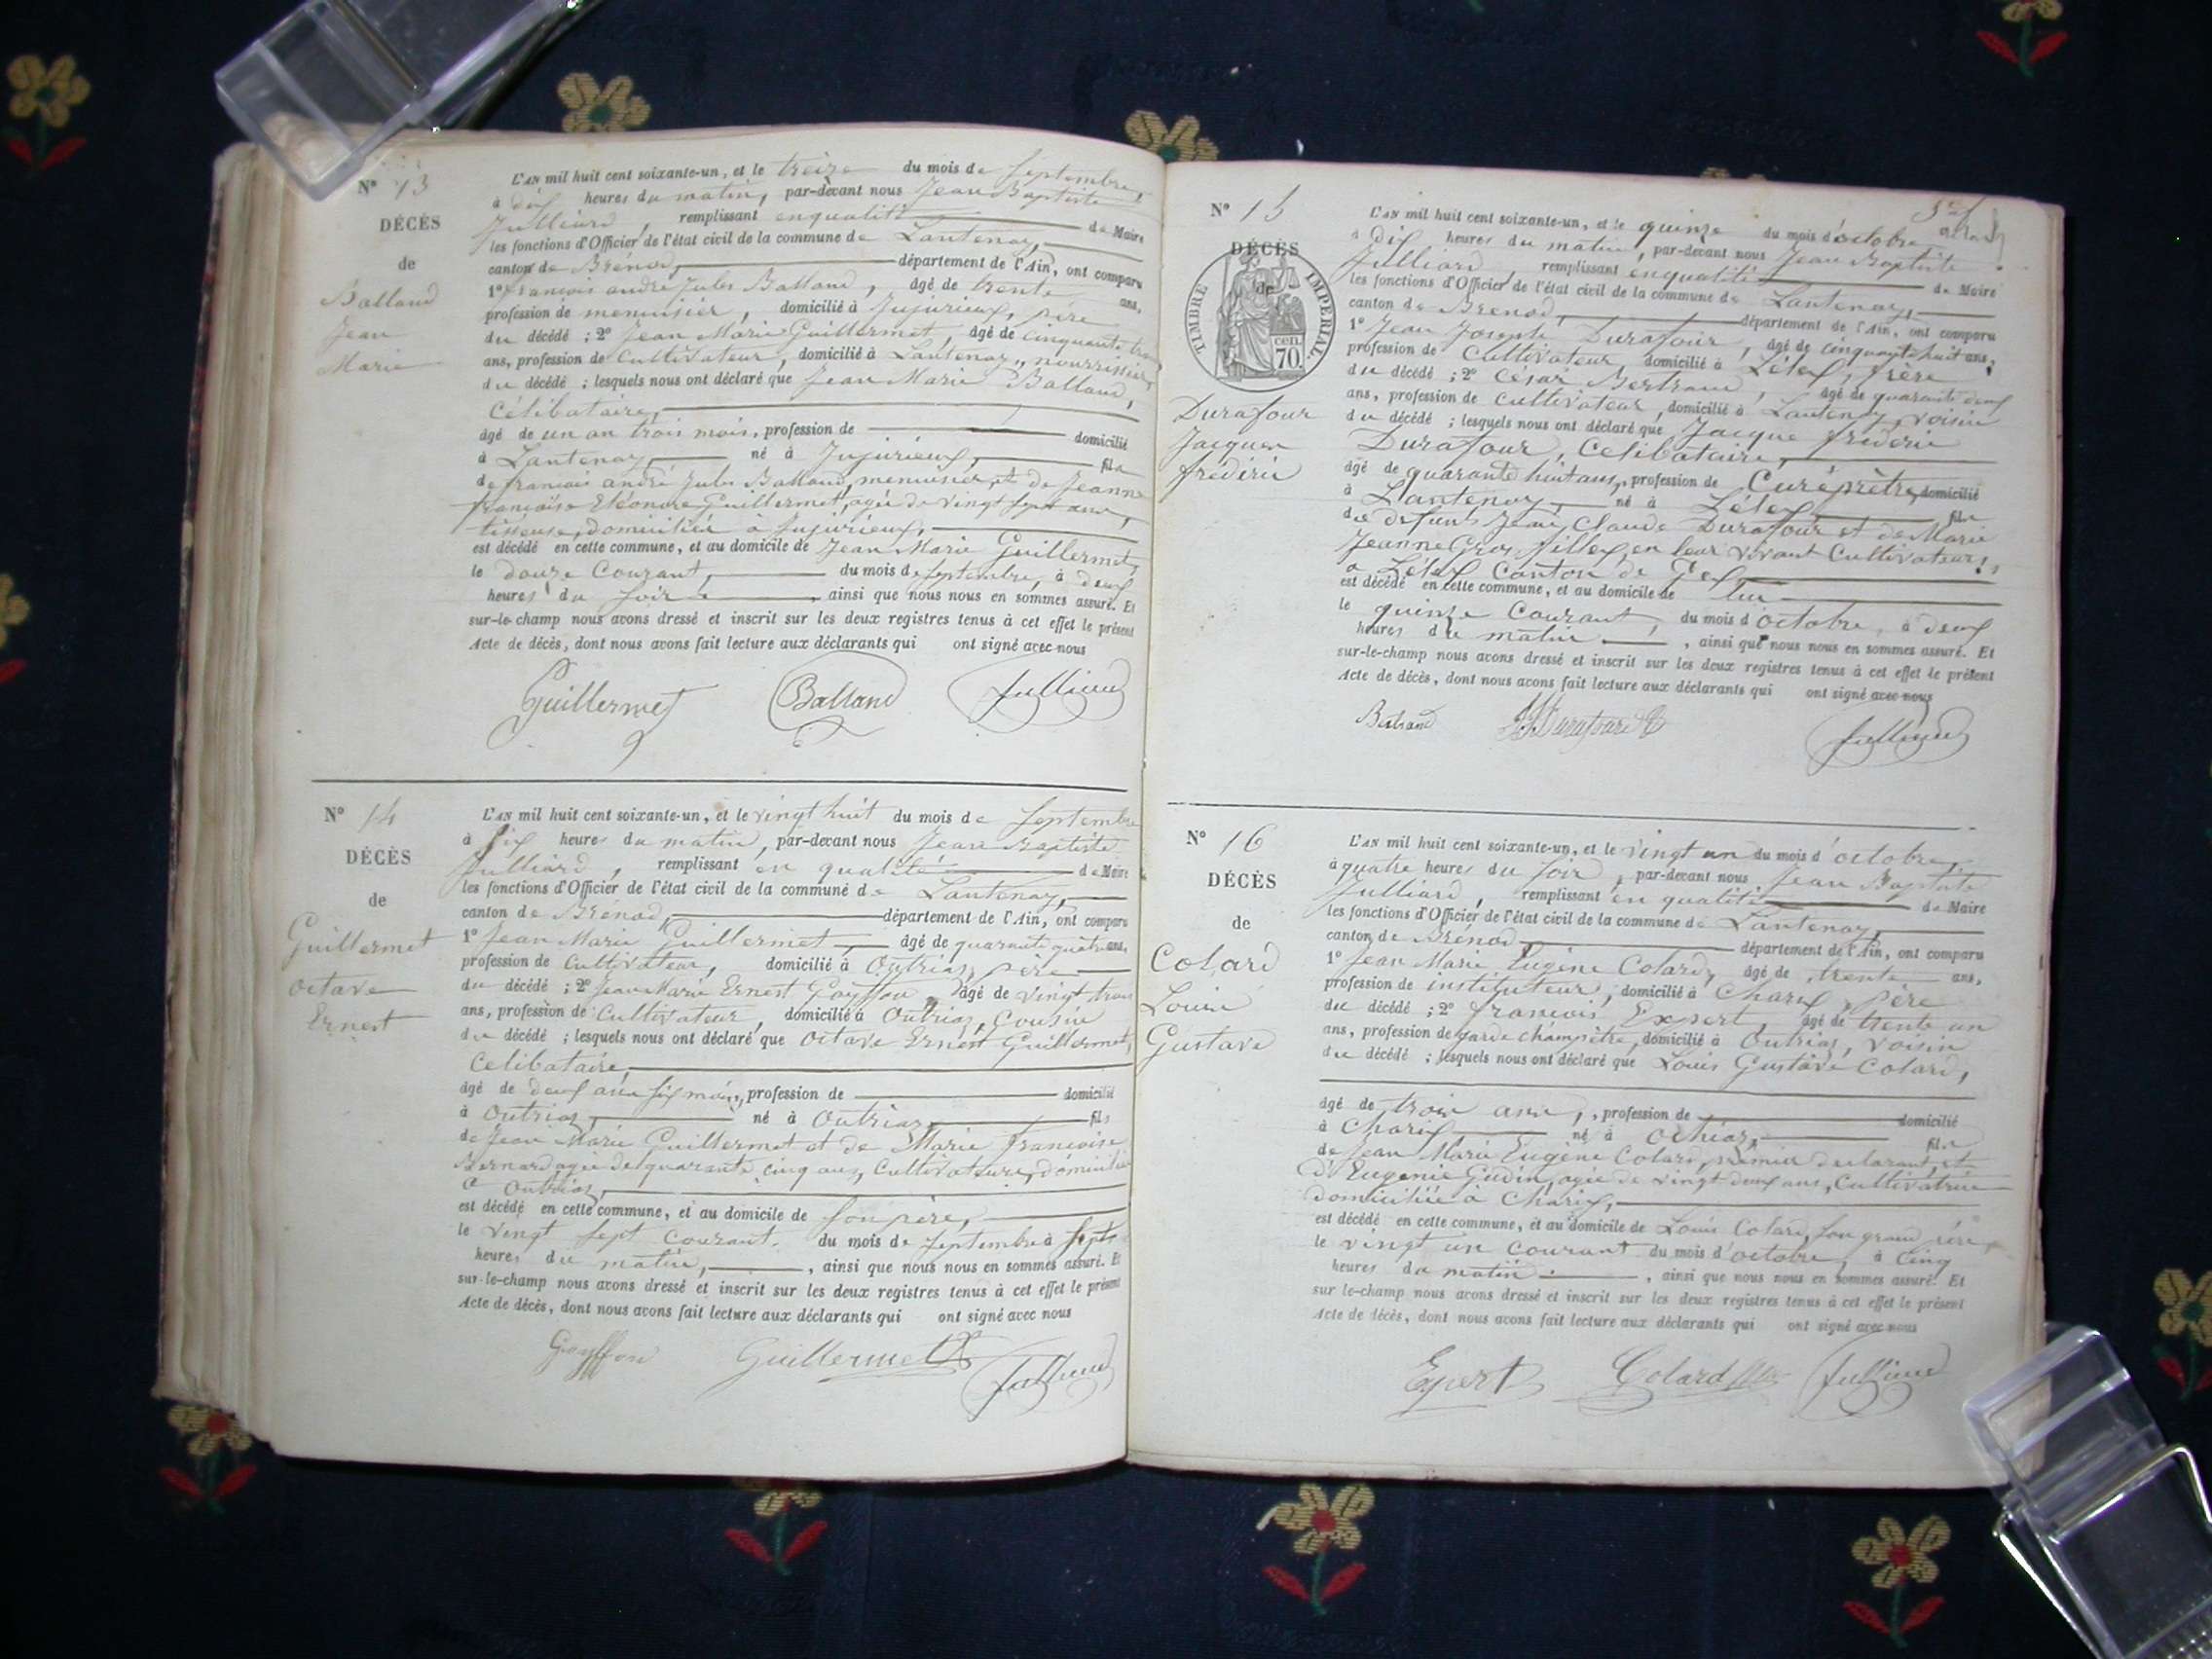 N° 13
DÉCÈS
de
Balland
Jean
Marie
L'AN mil huit cent soixante-un, et le treize du mois de Septembre,
à dix heures du matin, par-devant nous Jean Baptiste
Julliard, remplissant en qualité de Maire
les fonctions d'Officier de l'état civil de la commune de Lantenay,
canton de Brénod, département de l'Ain, ont comparu
1° françois andré Jules Balland, âgé de trente ans,
profession de menuisier, domicilié à Jujurieux, père
du décédé ; 2° Jean Marie Guillermet, âgé de cinquante trois
ans, profession de Cultivateur, domicilié à Lantenay, nourrissier
du décédé ; lesquels nous ont déclaré que Jean Marie Balland,
Célibataire,
âgé de un an trois mois, profession de domicilié
à Lantenay, né à Jujurieux, fils
de françois andré Jules Balland, menuisier, et de Jeanne
françoise Eléonore Guillermet, agée de vingt sept ans,
tisseuse, domiciliée à Jujurieux,
est décédé en cette commune, et au domicile de Jean Marie Guillermet,
le douze Courant, du mois de Septembre, à deux
heures du soir, ainsi que nous nous en sommes assuré. Et
sur-le-champ nous avons dressé et inscrit sur les deux registres tenus à cet effet le présent
Acte de décès, dont nous avons fait lecture aux déclarants qui ont signé avec nous
Guillermet Balland Julliard
N° 14
DÉCÈS
de
Guillermet
octave
Ernest
L'AN mil huit cent soixante-un, et le vingt huit du mois de Septembre
à six heures du matin, par-devant nous Jean Baptiste
Julliard, remplissant en qualité de Maire
les fonctions d'Officier de l'état civil de la commune de Lantenay,
canton de Brénod, département de l'Ain, ont comparu
1° Jean Marie Guillermet, âgé de quarante quatre ans,
profession de Cultivateur, domicilié à Outriaz, père
du décédé ; 2° Jean Marie Ernest Goyffon, âgé de vingt trois
ans, profession de Cultivateur, domicilié à Outriaz, Cousin
du décédé ; lesquels nous ont déclaré que Octave Ernest Guillermet,
Celibataire,
âgé de deux ans six mois, profession de domicilié
à Outriaz, né à Outriaz, fils
de Jean Marie Guillermet et de Marie françoise
Bernard agée de quarante cinq ans, Cultivateurs, domiciliés
à Outriaz,
est décédé en cette commune, et au domicile de son père,
le vingt sept courant, du mois de Septembre à sept
heures du matin, ainsi que nous nous en sommes assuré. Et
sur-le-champ nous avons dressé et inscrit sur les deux registres tenus à cet effet le présent
Acte de décès, dont nous avons fait lecture aux déclarants qui ont signé avec nous
Goyffon Guillermet Julliard
N° 15
DÉCÈS
de
TIMBRE IMPERIAL
cen
70.
Durafour
Jacques
frédéric
L'AN mil huit cent soixante-un, et le quinze du mois d'octobre
à dix heures du matin, par-devant nous Jean Baptiste
Julliard remplissant en qualité de Maire
les fonctions d'Officier de l'état civil de la commune de Lantenay,
canton de Brenod, département de l'Ain, ont comparu
1° Jean Joseph Durafour, âgé de cinquante huit ans,
profession de Cultivateur domicilié à Lélex, frère
du décédé ; 2° César Bertrand, âgé de quarante deux
ans, profession de cultivateur, domicilié à Lantenay, voisin
du décédé ; lesquels nous ont déclaré que Jacque fréderic
Durafour, Celibataire,
âgé de quarante huit ans, profession de Curé prêtre, domicilié
à Lantenay, né à Lélex fils
de defunts Jean Claude Durafour et de Marie
Jeanne Gros fillex, en leur vivant Cultivateurs,
à Lélex Canton de Gex
est décédé en cette commune, et au domicile de lui
le quinze Courant, du mois d'octobre, à deux
heures du matin, ainsi que nous nous en sommes assuré. Et
sur-le-champ nous avons dressé et inscrit sur les deux registres tenus à cet effet le présent
Acte de décès, dont nous avons fait lecture aux déclarants qui ont signé avec nous
Bertrand Julliard
N° 16
DÉCÈS
de
Colard
Louis
Gustave
L'AN mil huit cent soixante-un, et le vingt un du mois d'octobre,
à quatre heures du soir, par-devant nous Jean Baptiste
Julliard, remplissant en qualité de Maire
les fonctions d'Officier de l'état civil de la commune de Lantenay,
canton de Brénod, département de l'Ain, ont comparu
1° Jean Marie Eugène Colard, âgé de trente ans,
profession de instituteur, domicilié à Charix, père
du décédé ; 2° françois Expert, âgé de trente un
ans, profession de garde champêtre, domicilié à Outriaz, voisin
du décédé ; lesquels nous ont déclaré que Louis Gustave Colard,
âgé de trois ans, profession de domicilié
à Charix né à Ochiaz, fils
de Jean Marie Eugène Colard, premier declarant, et
d'Eugenie Gudin, agée de vingt deux ans, Cultivatrice
domiciliée à Charix,
est décédé en cette commune, et au domicile de Louis Colard, son grand père,
le vingt un courant du mois d'octobre, à cinq
heures du matin, ainsi que nous nous en sommes assuré. Et
sur le-champ nous avons dressé et inscrit sur les deux registres tenus à cet effet le présent
Acte de décès, dont nous avons fait lecture aux déclarants qui ont signé avec nous
Expert Colard Julliard